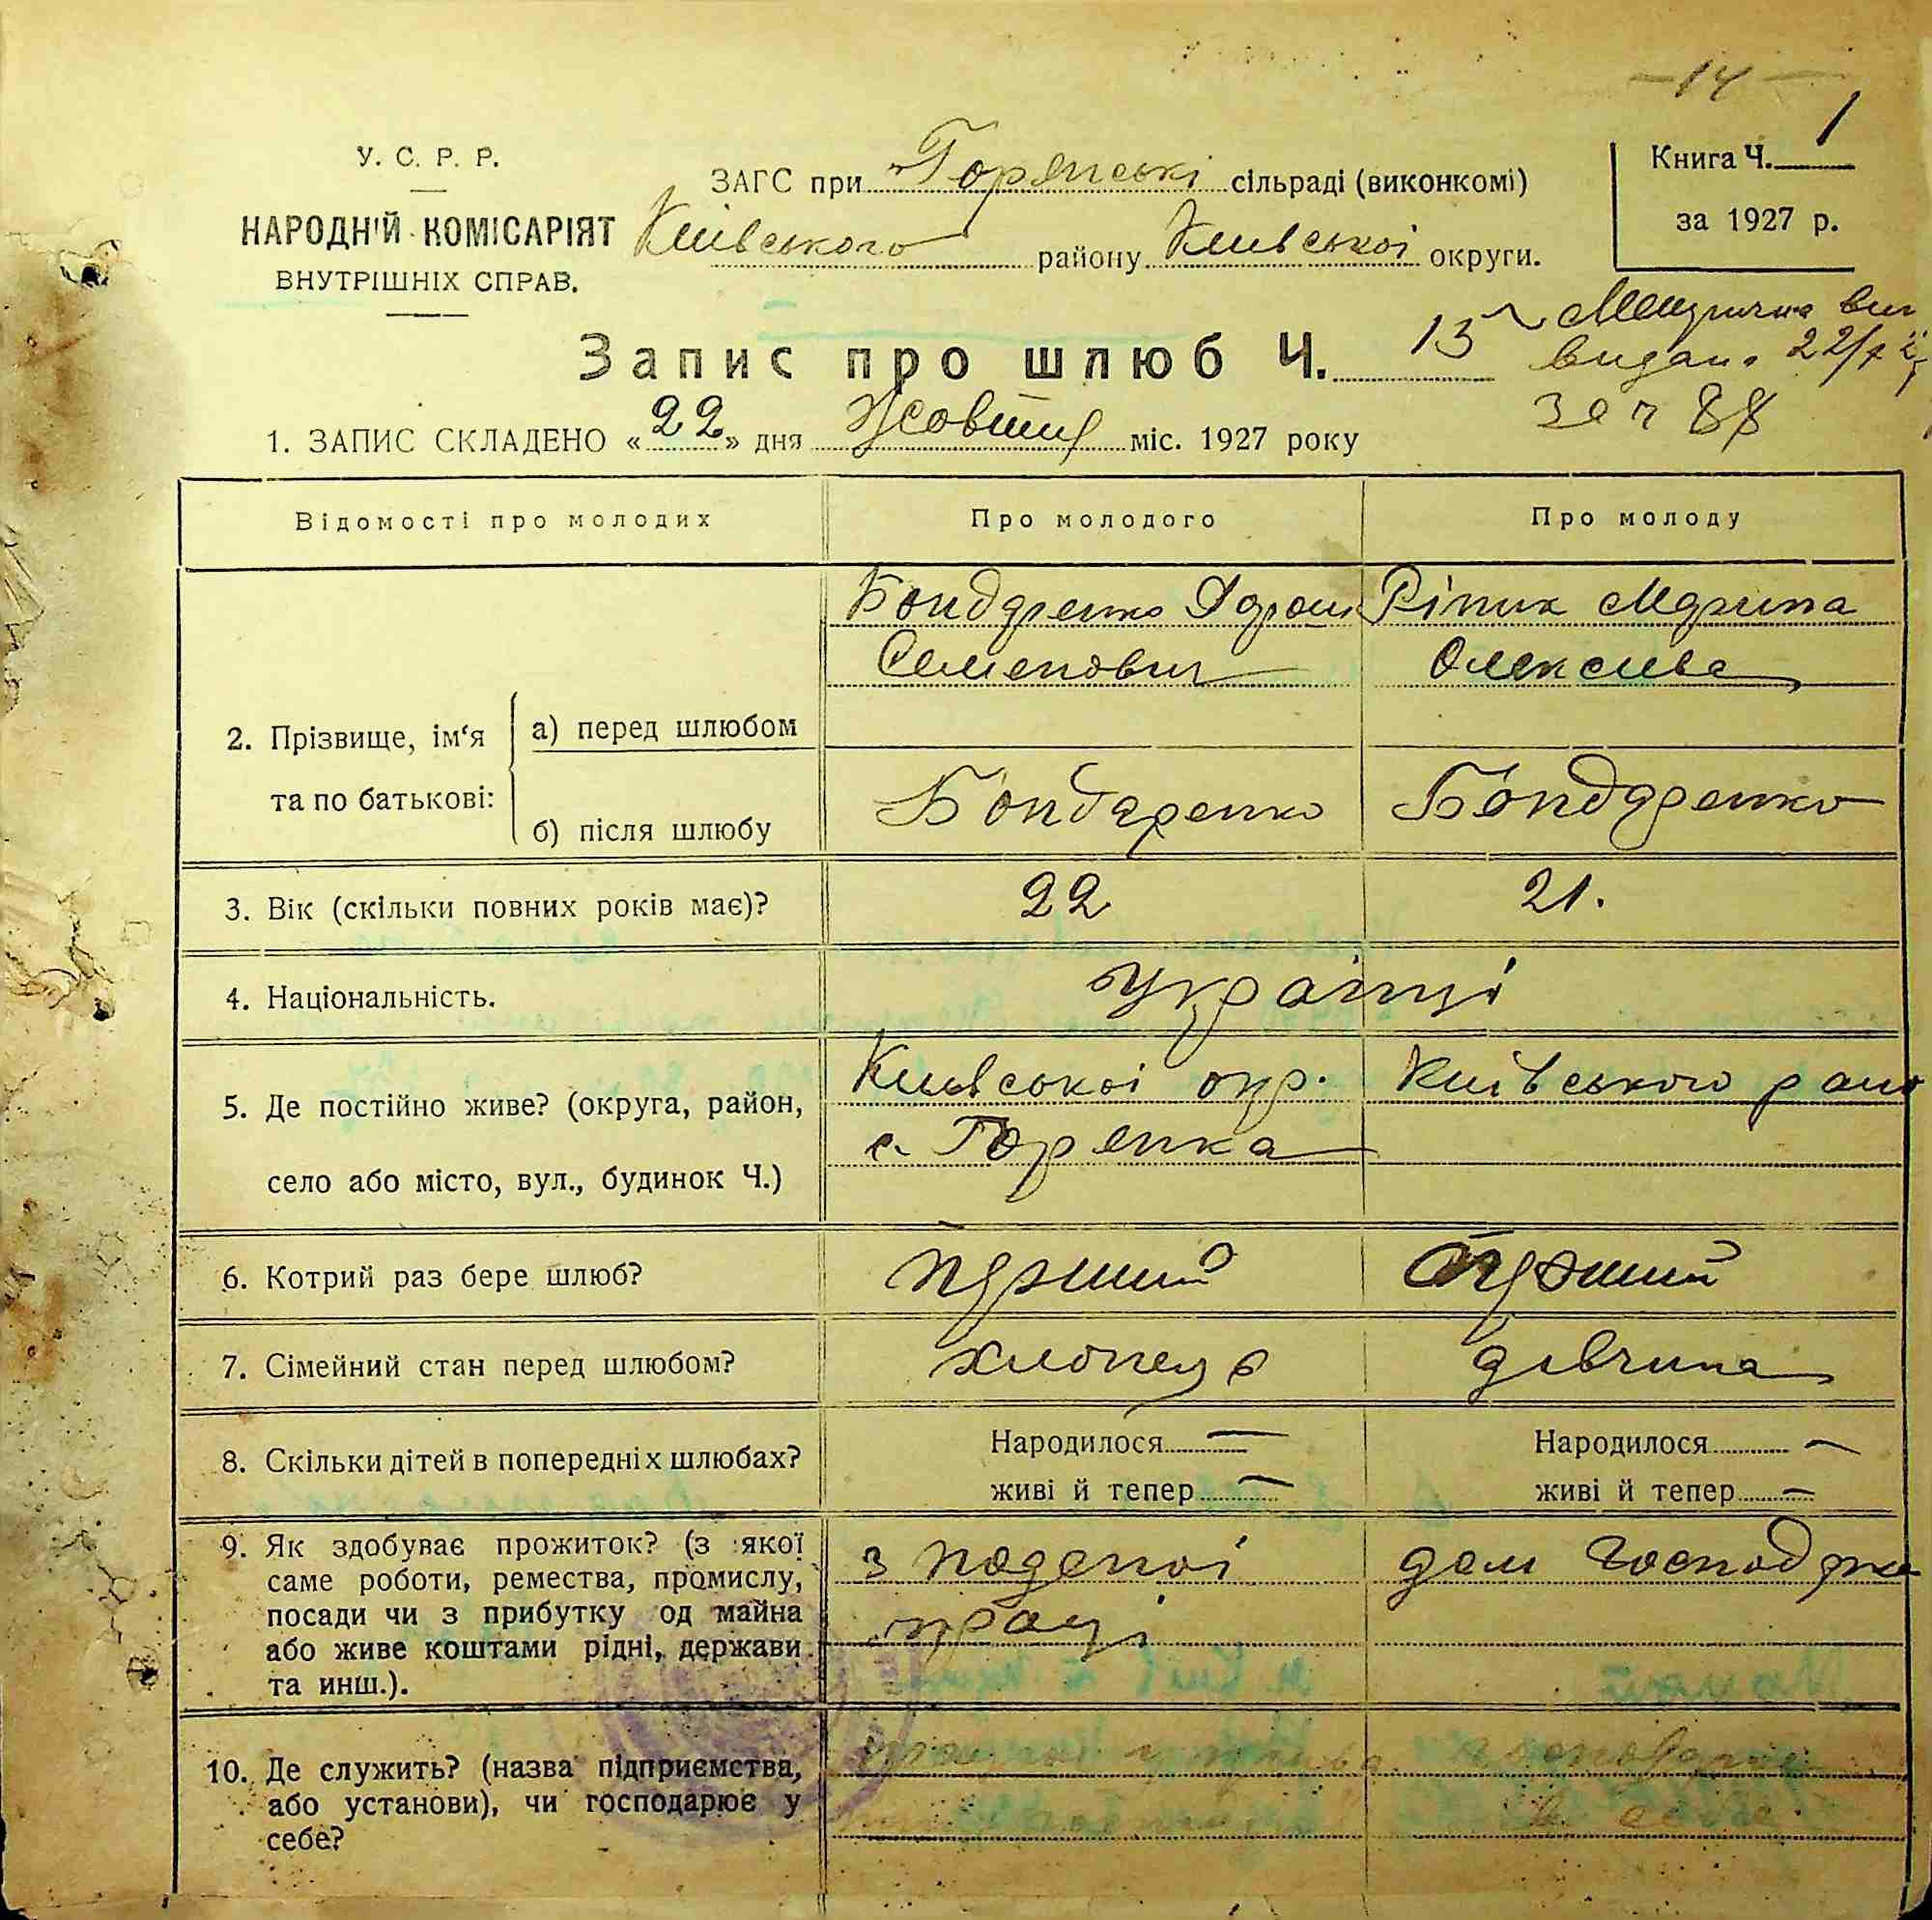 — 14 —
У. С. Р. Р.
НАРОДНІЙ КОМІСАРІЯТ
ВНУТРІШНІХ СПРАВ.
ЗАГС при Горянські сільраді (виконкомі)
Київського району Київської округи.
Книга Ч. 1
за 1927 р.
Запис про шлюб Ч. 13
видана 22/X
за ч 88
1. ЗАПИС СКЛАДЕНО «22» дня Жовтня міс. 1927 року
Відомості про молодих
Про молодого
Про молоду
2. Прізвище, ім‘я та по батькові:
а) перед шлюбом
Бондаренко
Семенович
Ріпик Марина
Олексиева
б) після шлюбу
Бондаренко
Бондаренко
3. Вік (скільки повних років має)?
22
21.
4. Національність.
Українці
5. Де постійно живе? (округа, район,
село або місто, вул., будинок Ч.)
Київської окр. Київського
с. Горянка
6. Котрий раз бере шлюб?
перший
перший
7. Сімейний стан перед шлюбом?
хлопець
дівчина
8. Скільки дітей в попередніх шлюбах?
Народилося —
живі й тепер —
Народилося —
живі й тепер —
9. Як здобуває прожиток? (з якої
саме роботи, ремества, промислу,
посади чи з прибутку од майна
або живе коштами рідні, держави
та инш.).
з поденої
праці
дом господарка
10. Де служить? (назва підприємства,
або установи), чи господарює у
себе?
в себе